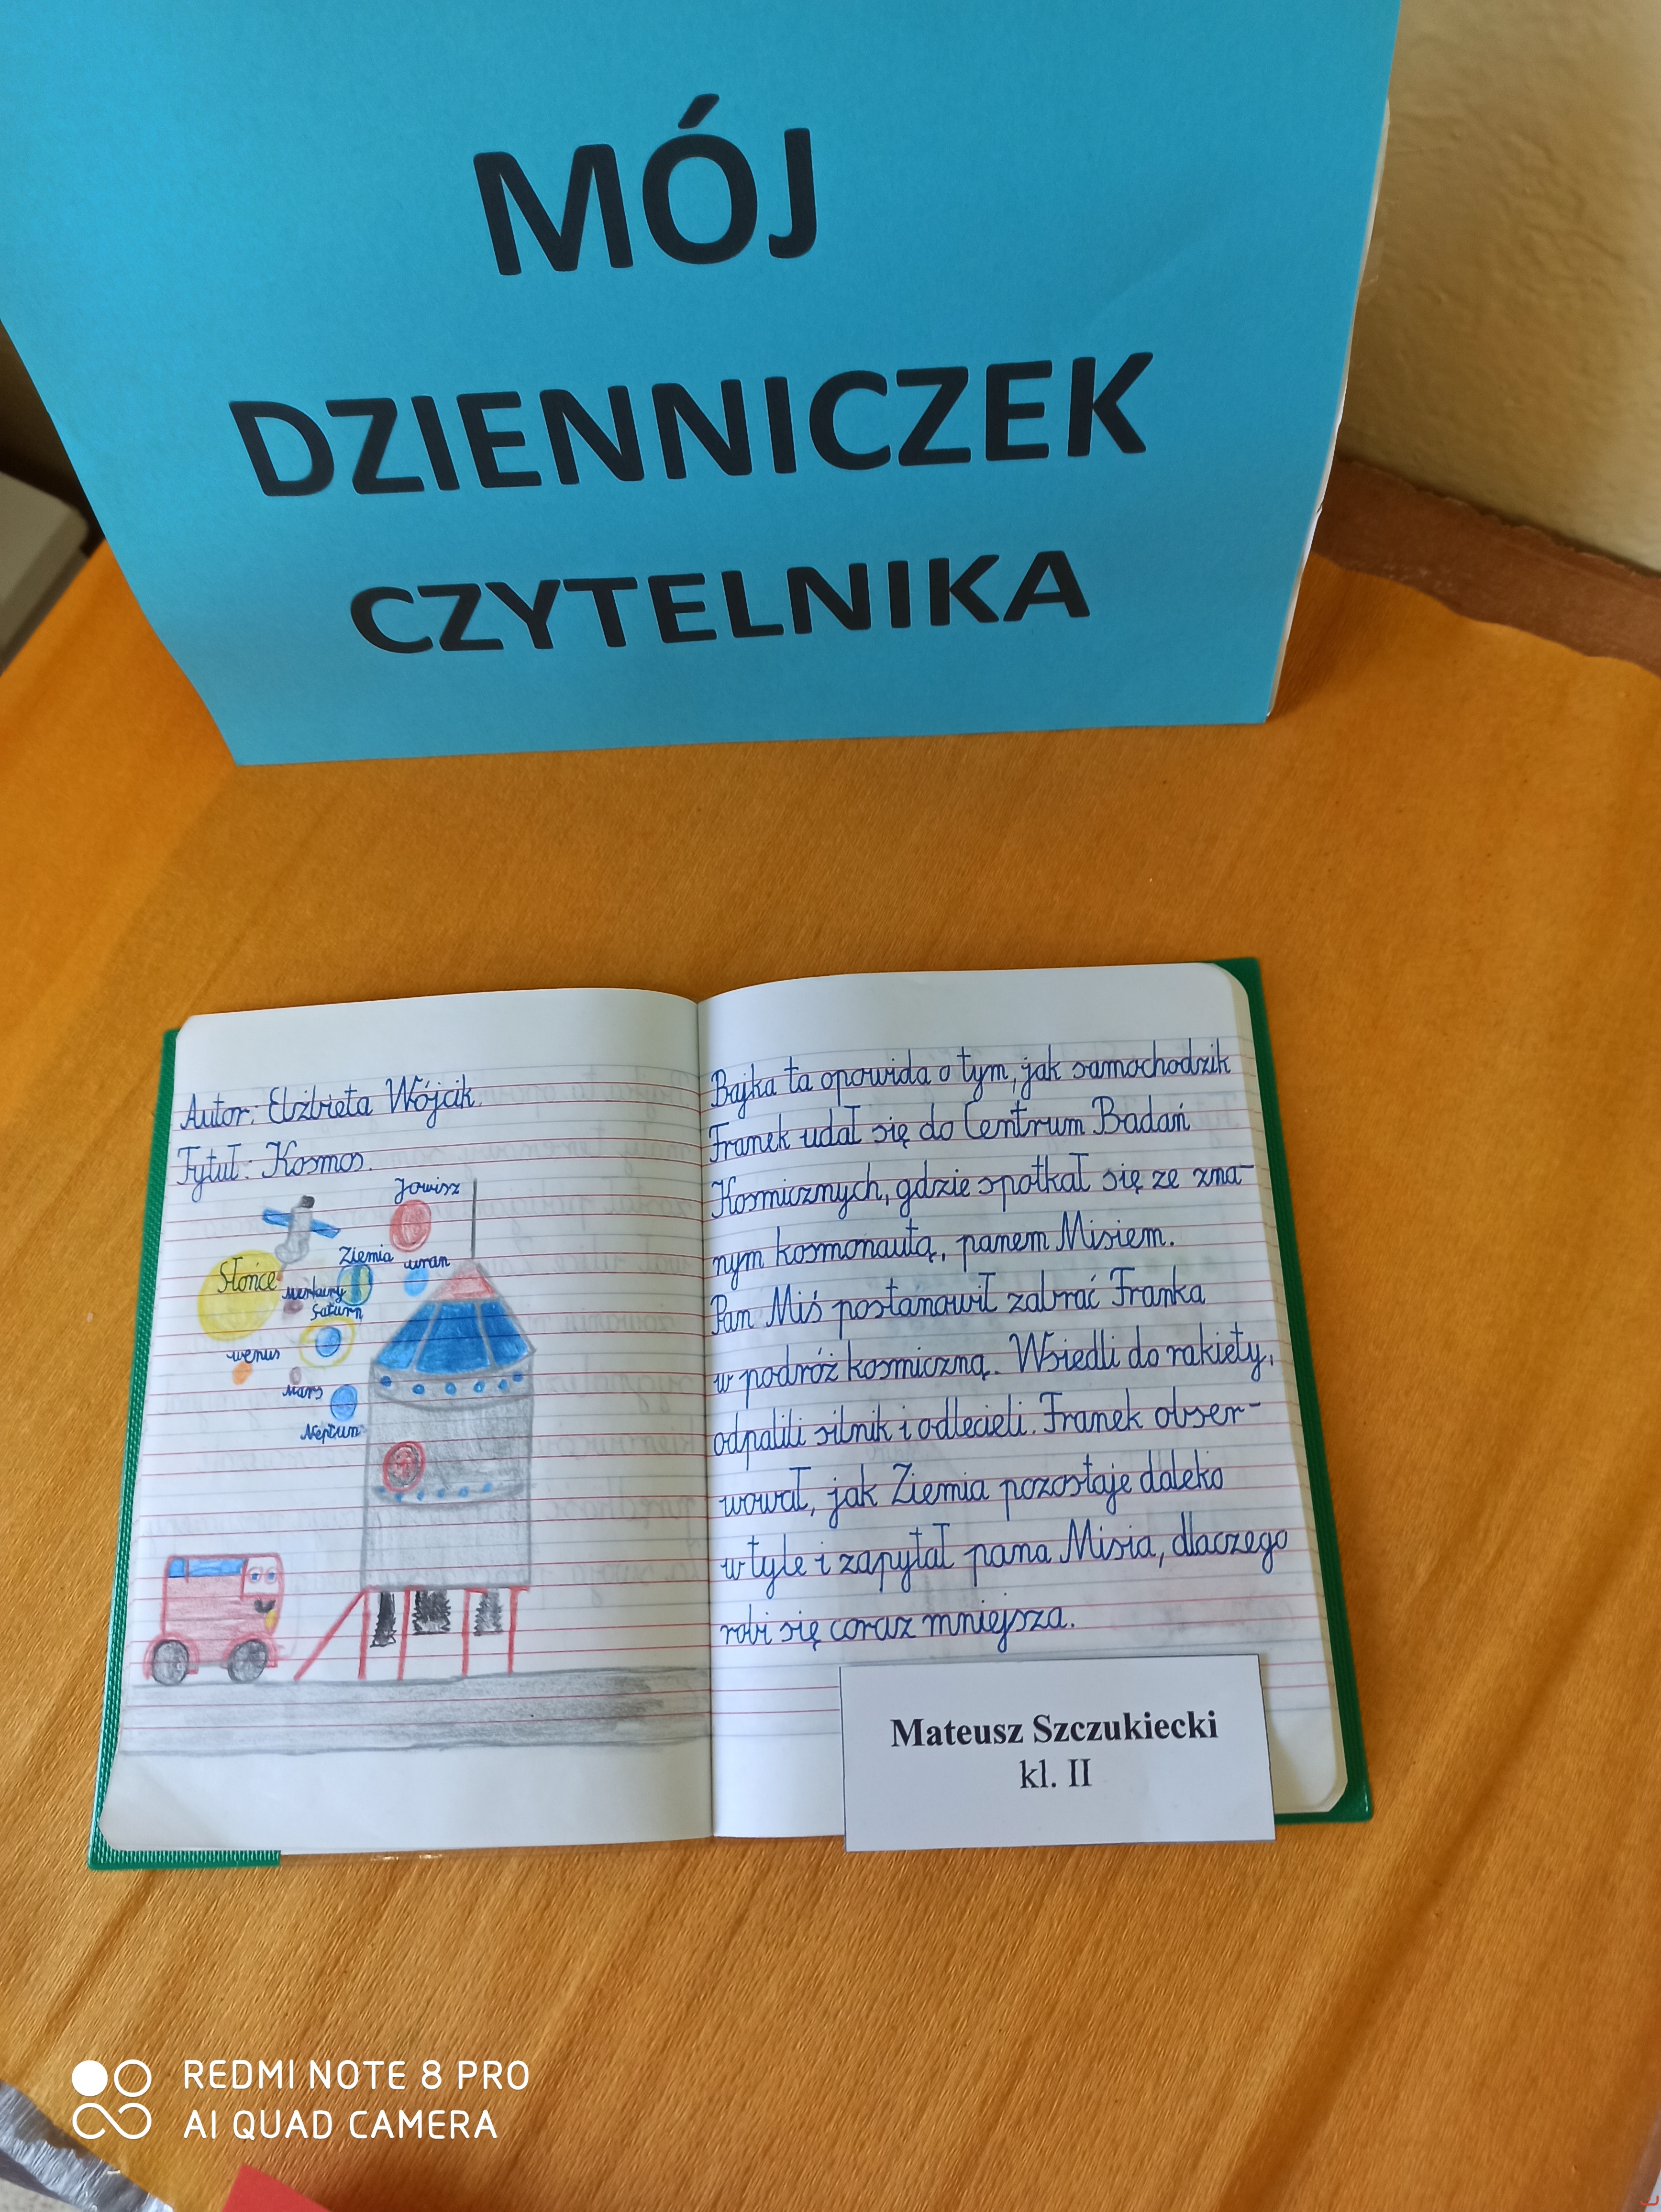 MÓJ
DZIENNICZEK
CZYTELNIKA
Autor: Elżbieta Wójcik.
Tytuł: Kosmos.
Jowisz
Ziemia
uran
Słońce
Merkury
Saturn
wenus
Mars
Neptun
Bajka ta opowida o tym, jak samochodzik
Franek udał się do Centrum Badań
Kosmicznych, gdzie spotkał się ze zna-
nym kosmonautą, panem Misiem.
Pan Miś postanowił zabrać Franka
w podróż kosmiczną. Wsiedli do rakiety,
odpalili silnik i odlecieli. Franek obser-
wował, jak Ziemia pozostaje daleko
w tyle i zapytał pana Misia, dlaczego
robi się coraz mniejsza.
Mateusz Szczukiecki
kl. II
REDMI NOTE 8 PRO
AI QUAD CAMERA